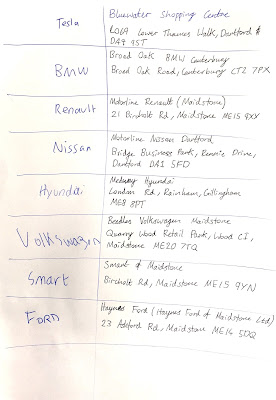 Tesla
Bluewater Shopping Centre
L069 Lower Thames Walk, Dartford &
DA9 9ST
BMW
Broad Oak BMW Canterbury
Broad Oak Road, Canterbury CT2 7PX
Renault
Motorline Renault (Maidstone)
21 Bircholt Rd, Maidstone ME15 9XY
Nissan
Motorline Nissan Dartford
Bridge Business Park, Rennie Drive,
Dartford DA1 5FD
Hyundai
Medway Hyundai
London Rd, Rainham, Gillingham
ME8 8PT
Volkswagen
Beadles Volkswagen Maidstone
Quarry Wood Retail Park, Wood Cl,
Maidstone ME20 7TQ
Smart
Smart of Maidstone
Bircholt Rd, Maidstone ME15 9YN
Ford
Haynes Ford (Haynes Ford of Maidstone Ltd)
23 Ashford Rd, Maidstone ME14 5DQ